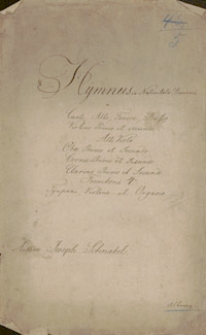 5
Hymnus
Canto Alto Tenore Basso
Violino Primo et secundo
Alto Viola
Oboe Primo et Secundo
Cornu Primo et Secundo
Clarino Primo et Secundo
Tympani Violone et Organo
Joseph Schnabel